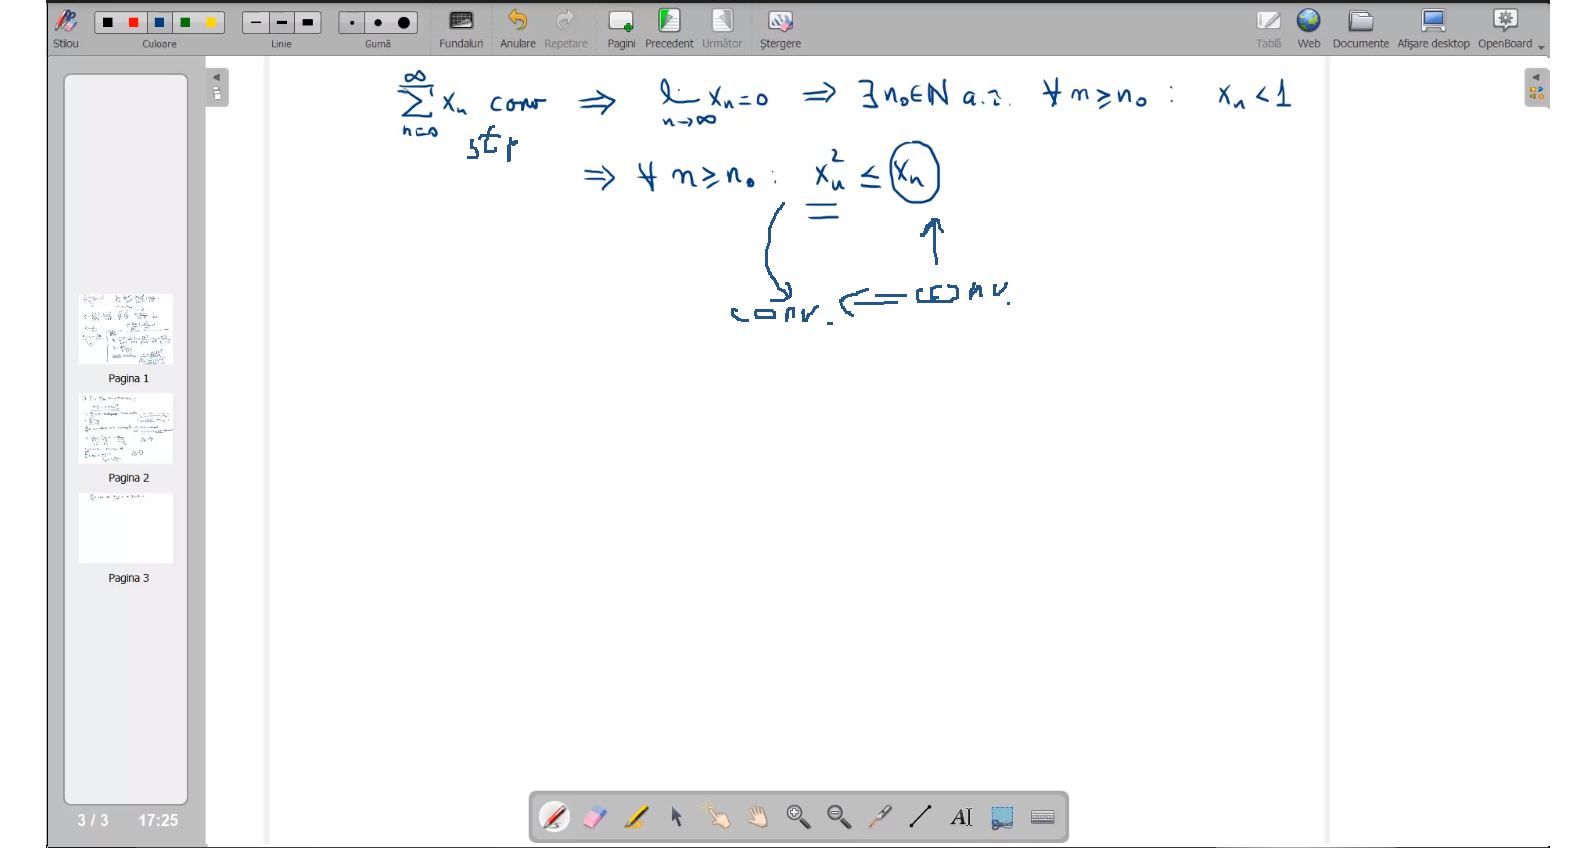 Stilou Culoare Linie Gumă Fundaluri Anulare Repetare Pagini Precedent Următor Ștergere Tablă Web Documente Afișare desktop OpenBoard
∞
∑ xₙ conv ⇒ lim xₙ=0 ⇒ ∃ n₀∈ℕ a.î. ∀ n≥n₀ : xₙ < 1
n=0 n→∞
stp
⇒ ∀ n≥n₀ : xₙ² ≤ xₙ
conv. ⇐ conv.
Pagina 1
Pagina 2
Pagina 3
3 / 3 17:25
AI